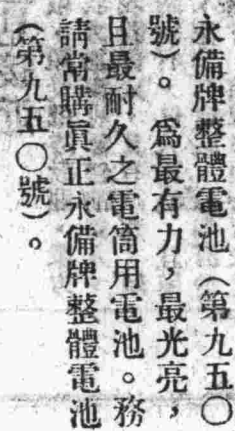 永備牌整體電池（第九五〇
號）。爲最有力，最光亮，
且最耐久之電筒用電池。務
請常購眞正永備牌整體電池
（第九五〇號）。